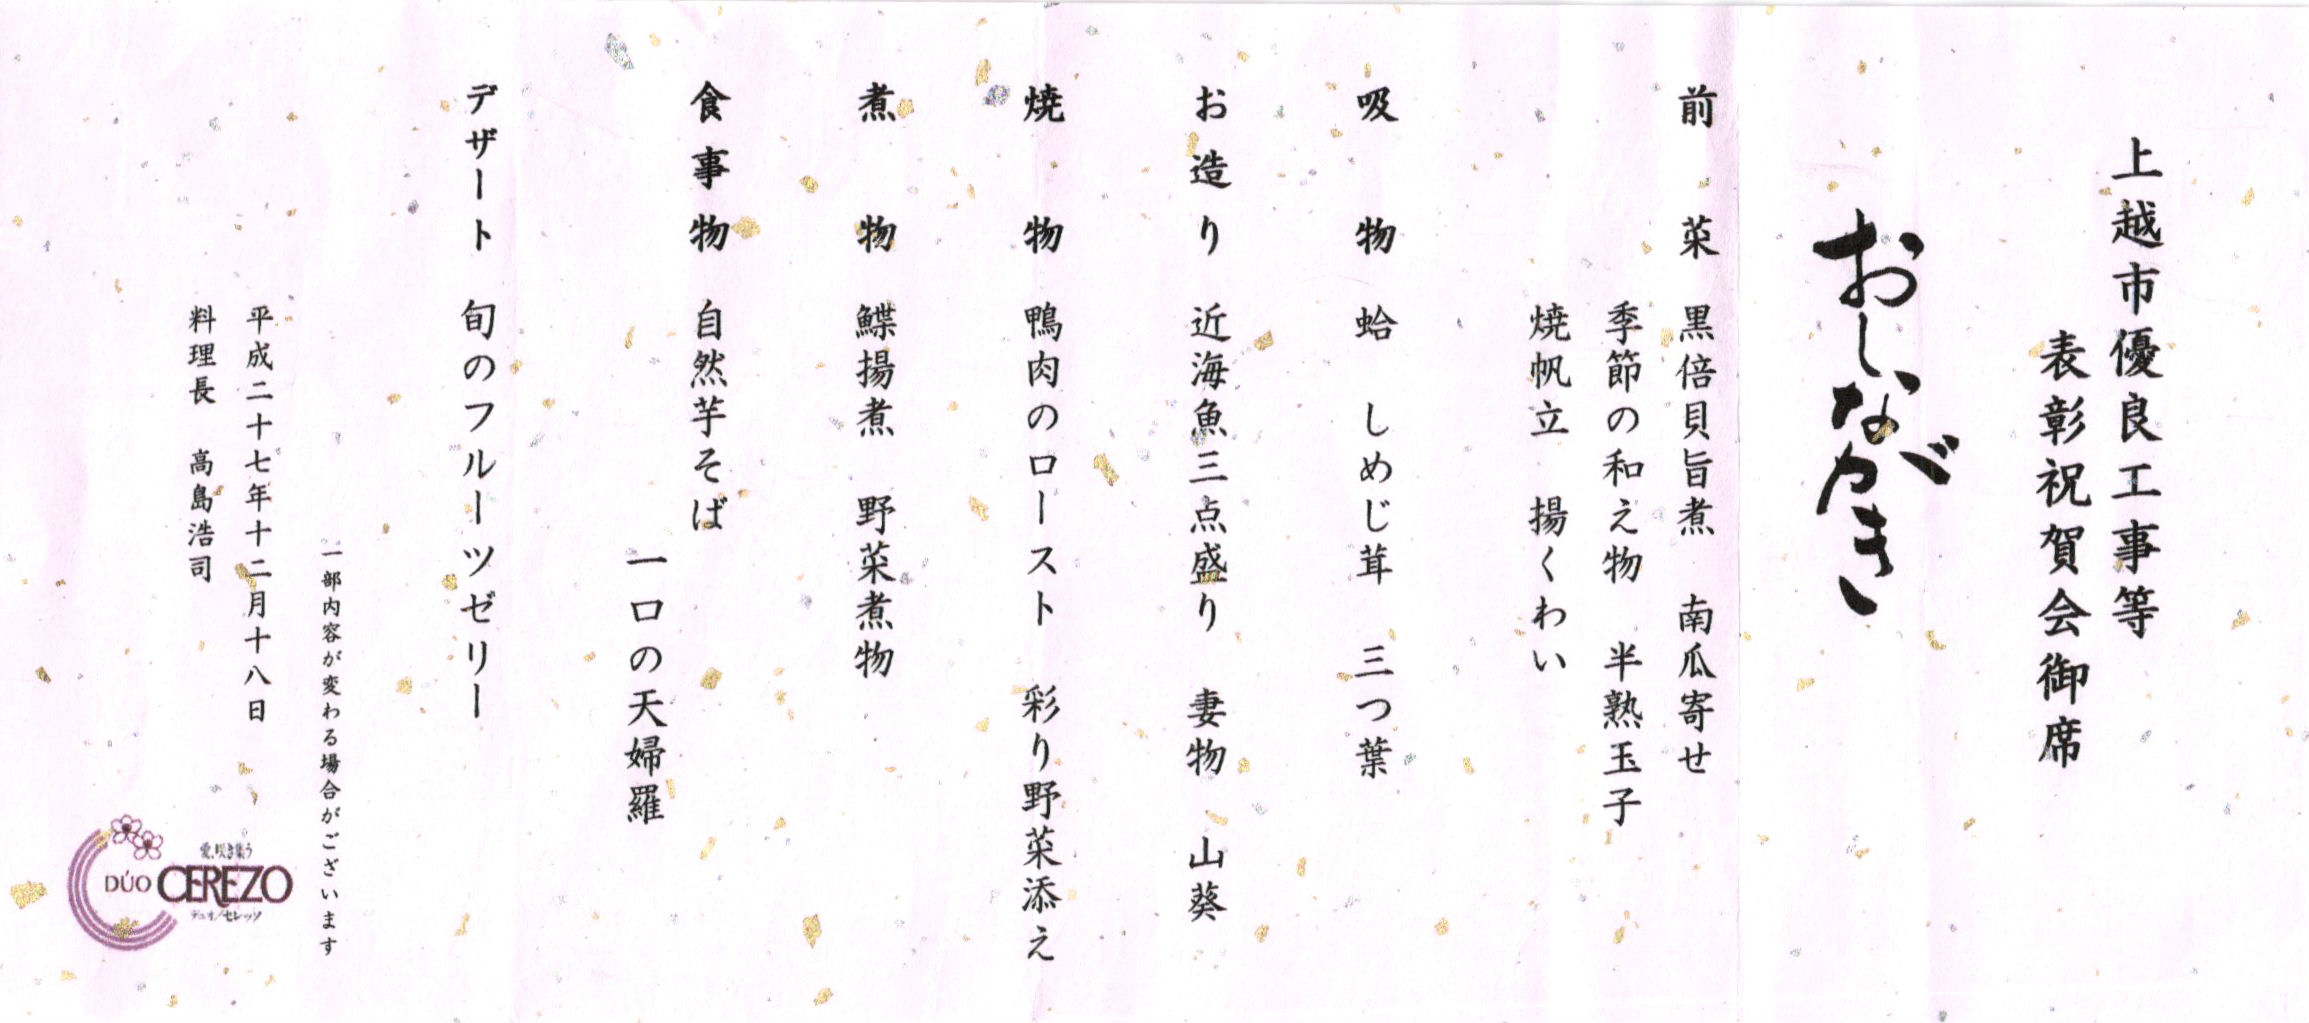 上越市優良工事等
表彰祝賀会御席
おしながき
前菜 黒倍貝旨煮 南瓜寄せ
季節の和え物 半熟玉子
焼帆立 揚くわい
吸物 蛤 しめじ茸 三つ葉
お造り 近海魚三点盛り 妻物 山葵
焼物 鴨肉のロースト 彩り野菜添え
煮物 鰈揚煮 野菜煮物
食事物 自然芋そば
一口の天婦羅
デザート 旬のフルーツゼリー
一部内容が変わる場合がございます
平成二十七年十二月十八日
料理長 高島浩司
愛、咲き集う
DÚO CEREZO
デュオ・セレッソ